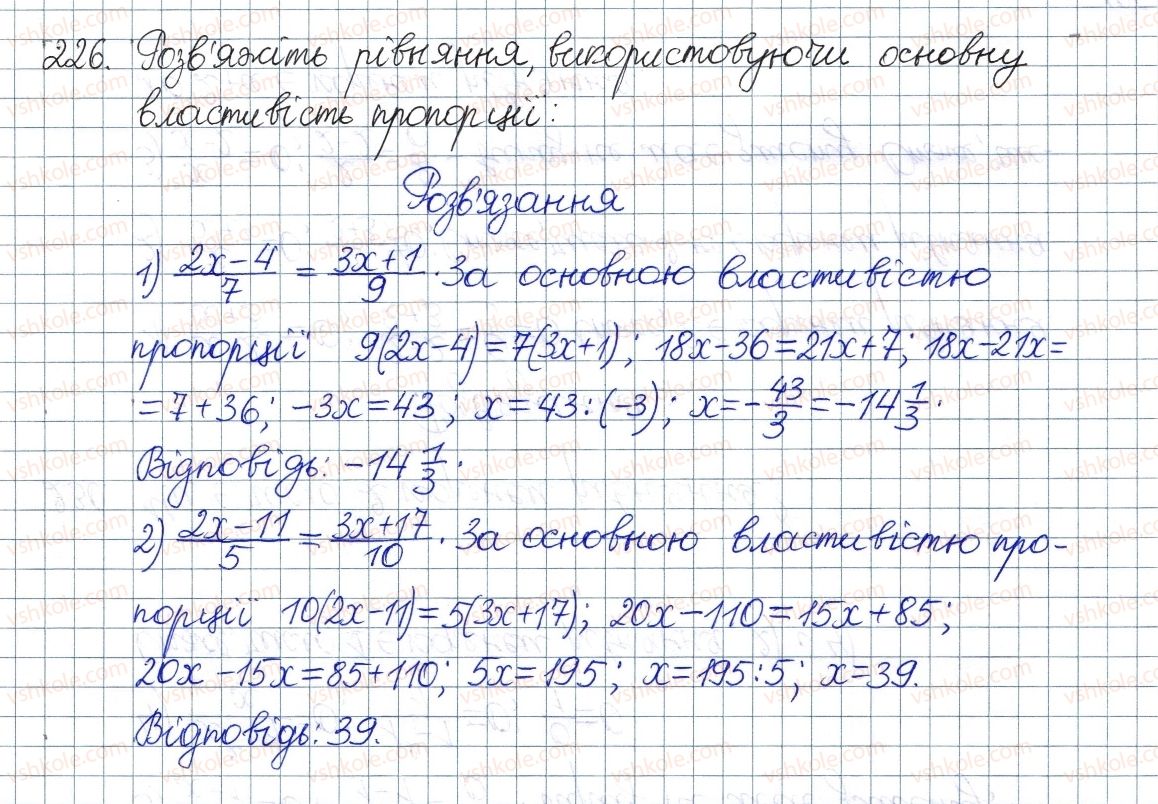 226. Розв'яжіть рівняння, використовуючи основну
властивість пропорції:
Розв'язання
1) (2x-4)/7 = (3x+1)/9. За основною властивістю
пропорції 9(2x-4)=7(3x+1); 18x-36=21x+7; 18x-21x=
=7+36; -3x=43; x=43:(-3); x=-43/3=-14 1/3.
Відповідь: -14 1/3.
2) (2x-11)/5 = (3x+17)/10. За основною властивістю про-
порції 10(2x-11)=5(3x+17); 20x-110=15x+85;
20x-15x=85+110; 5x=195; x=195:5; x=39.
Відповідь: 39.